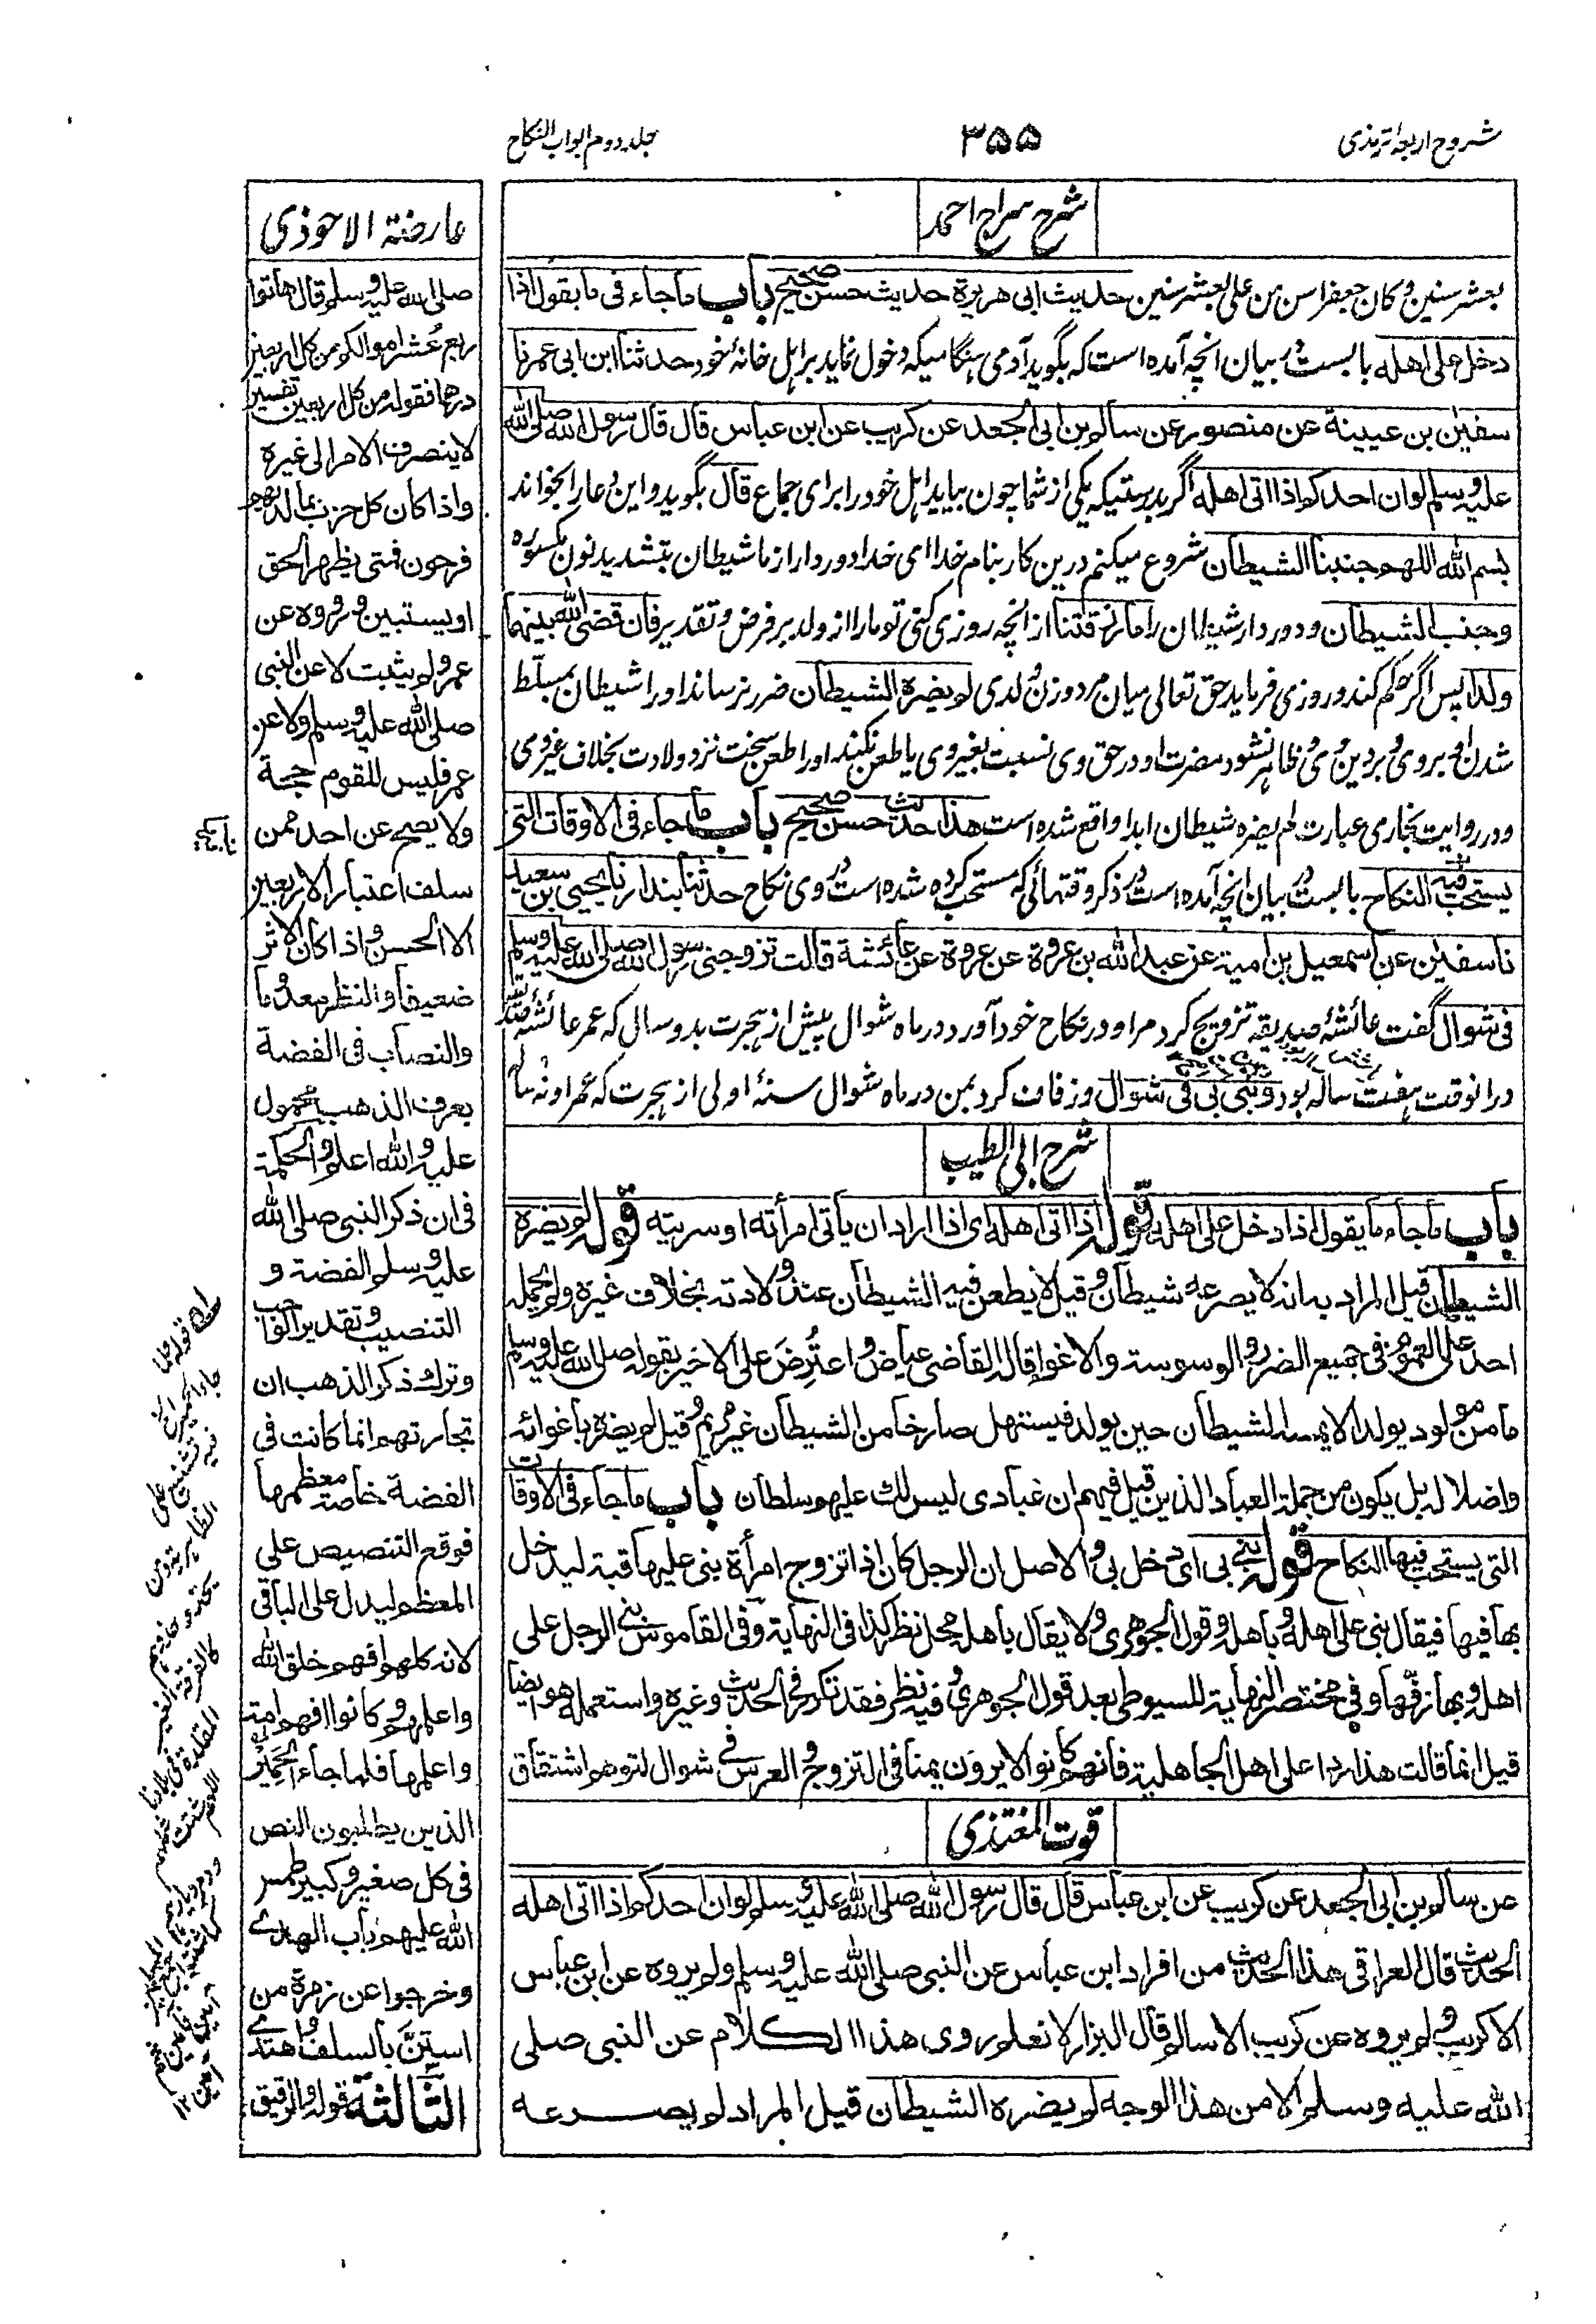 شروح اربعہ ترمذی
۳۵۵
جلد دوم ابواب النکاح
شرح سراج احمد
بعشر سنين وكان جعفر اسن من على بعشر سنين حديث ابى هريرة حديث حسن صحيح باب ما جاء فى ما يقول اذا
دخل على اهله بابست در بیان انچه آمده است که بگوید آدمی هنگامیکه دخول نماید بر اہل خانۂ خود حدثنا ابن ابى عمر نا
سفيٰن بن عيينة عن منصور عن سالم بن ابى الجعد عن كريب عن ابن عباس قال قال رسول الله صلى الله
عليه وسلم لو ان احدكم اذا اتى اهله اگر بدرستیکه یکی از شما چون بیاید اہل خود را برای جماع قال بگوید و این دعا را بخواند
بسم الله اللهم جنبنا الشيطان شروع میکنم درین کار بنام خدا ای خدا دور دار از ما شیطان بتشدید نون مکسوره
وجنب الشيطان و دور دار شیطان را ما رزقتنا از انچه روزی کنی تو مارا از ولد بر فرض و تقدیر فان قضى الله بينهما
ولدا پس اگر حکم کند و روزی فرماید حق تعالی میان مرد و زن ولدی لم يضره الشيطان ضرر نرساند او را شیطان بمسلط
شدن او بروی و بر دین وی ظاهر نشود مضرت او در حق وی نسبت بغیر وی یا طعن نکند او را طعن سخت نزد ولادت بخلاف غیر وی
و در روایت بخاری عبارت لم یضره شیطان ابدا واقع شده است هذا حديث حسن صحيح باب ما جاء فى الاوقات التى
يستحب فيه النكاح بابست در بیان انچه آمده است در ذکر وقتهائی که مستحب کرده شده است در وی نکاح حدثنا بندار نا يحيى بن سعيد
نا سفيٰن عن اسمعيل بن امية عن عبد الله بن عروة عن عروة عن عائشة قالت تزوجنى رسول الله صلى الله عليه وسلم
فى شوال گفت عائشۂ صدیقہ تزویج کرد مرا و در نکاح خود آورد در ماه شوال پیش از ہجرت بدو سالی که عمر عائشۂ صدیقہ
در انوقت ہفت سالہ بود وبنى بى فى شوال وزفاف کرد بمن در ماه شوال سنۂ اولی از ہجرت که عمر او نہ سا
شرح ابی الطیب
باب ما جاء ما يقول اذا دخل على اهله قوله اذا اتى اهله اى اذا اراد ان يأتى امرأته او سريته قوله لم يضره
الشيطان قيل المراد به انه لا يصرعه شيطان وقيل لا يطعن فيه الشيطان عند ولادته بخلاف غيره ولم يحمله
احد على العموم فى جميع الضرر والوسوسة والاغواء قال القاضى عياض واعتُرِضَ على الاخير بقوله صلى الله عليه وسلم
ما من مولود يولد الا يمسه الشيطان حين يولد فيستهل صارخا من الشيطان غير مريم وقيل لم يضره باغوائه
واضلاله بل يكون من جملة العباد الذين قيل فيهم ان عبادى ليس لك عليهم سلطان باب ما جاء فى الاوقات
التى يستحب فيها النكاح قوله بنى بى اى دخل بى والاصل ان الرجل كان اذا تزوج امرأة بنى عليها قبة ليدخل
بها فيها فيقال بنى على اهله وباهله وقول الجوهرى ولا يقال باهله محل نظر كذا فى النهاية وفى القاموس بنى الرجل على
اهله وبها زفّها وفى مختصر النهاية للسيوطى بعد قول الجوهرى وفيه نظر فقد تكرر فى الحديث وغيره واستعمله هو ايضا
قيل انما قالت هذا ردا على اهل الجاهلية فانهم كانوا لا يرون يمنا فى التزوج والعرس فى شوال لتوهم اشتقاق
قوت المغتذی
عن سالم بن ابى الجعد عن كريب عن ابن عباس قال قال رسول الله صلى الله عليه وسلم لو ان احدكم اذا اتى اهله
الحديث قال العراقى هذا الحديث من افراد ابن عباس عن النبى صلى الله عليه وسلم ولم يروه عن ابن عباس
الا كريب ولم يروه عن كريب الا سالم وقال البزار لا نعلم روى هذا الكلام عن النبى صلى
الله عليه وسلم الا من هذا الوجه لم يضره الشيطان قيل المراد لم يصرعه
عارضة الاحوذی
صلى الله عليه وسلم قال هاتوا
ربع عُشر اموالكم من كل اربعين
درهما فقوله من كل اربعين تفسير
لا ينصرف الامر الى غيره
واذا كان كل حزب بما لديهم
فرحون فمتى يظهر الحق
او يستبين وروه عن
عمر ولم يثبت لا عن النبى
صلى الله عليه وسلم ولا عن
عمر فليس للقوم حجة
ولا يصح عن احد ممن
سلف اعتبار الاربعين
الا الحسن واذا كان الاثر
ضعيفا والنظر معدوما
والنصاب فى الفضة
يعرف الذهب محمول
عليه والله اعلم والحكمة
فى ان ذكر النبى صلى الله
عليه وسلم الفضة و
التنصيب وتقدير الواجب
وترك ذكر الذهب ان
تجارتهم انما كانت فى
الفضة خاصة معظمها
فوقع التنصيص على
المعظم ليدل على الباقى
لانه كلهم افهم خلق الله
واعلمهم وكانوا افهم امة
واعلمها فلما جاء الحَمِيْرُ
الذين يطلبون النص
فى كل صغير وكبير طمس
الله عليهم باب الهدى
وخرجوا عن زمرة من
استنَّ بالسلف واهتدى
الثالثة قوله والرقيق